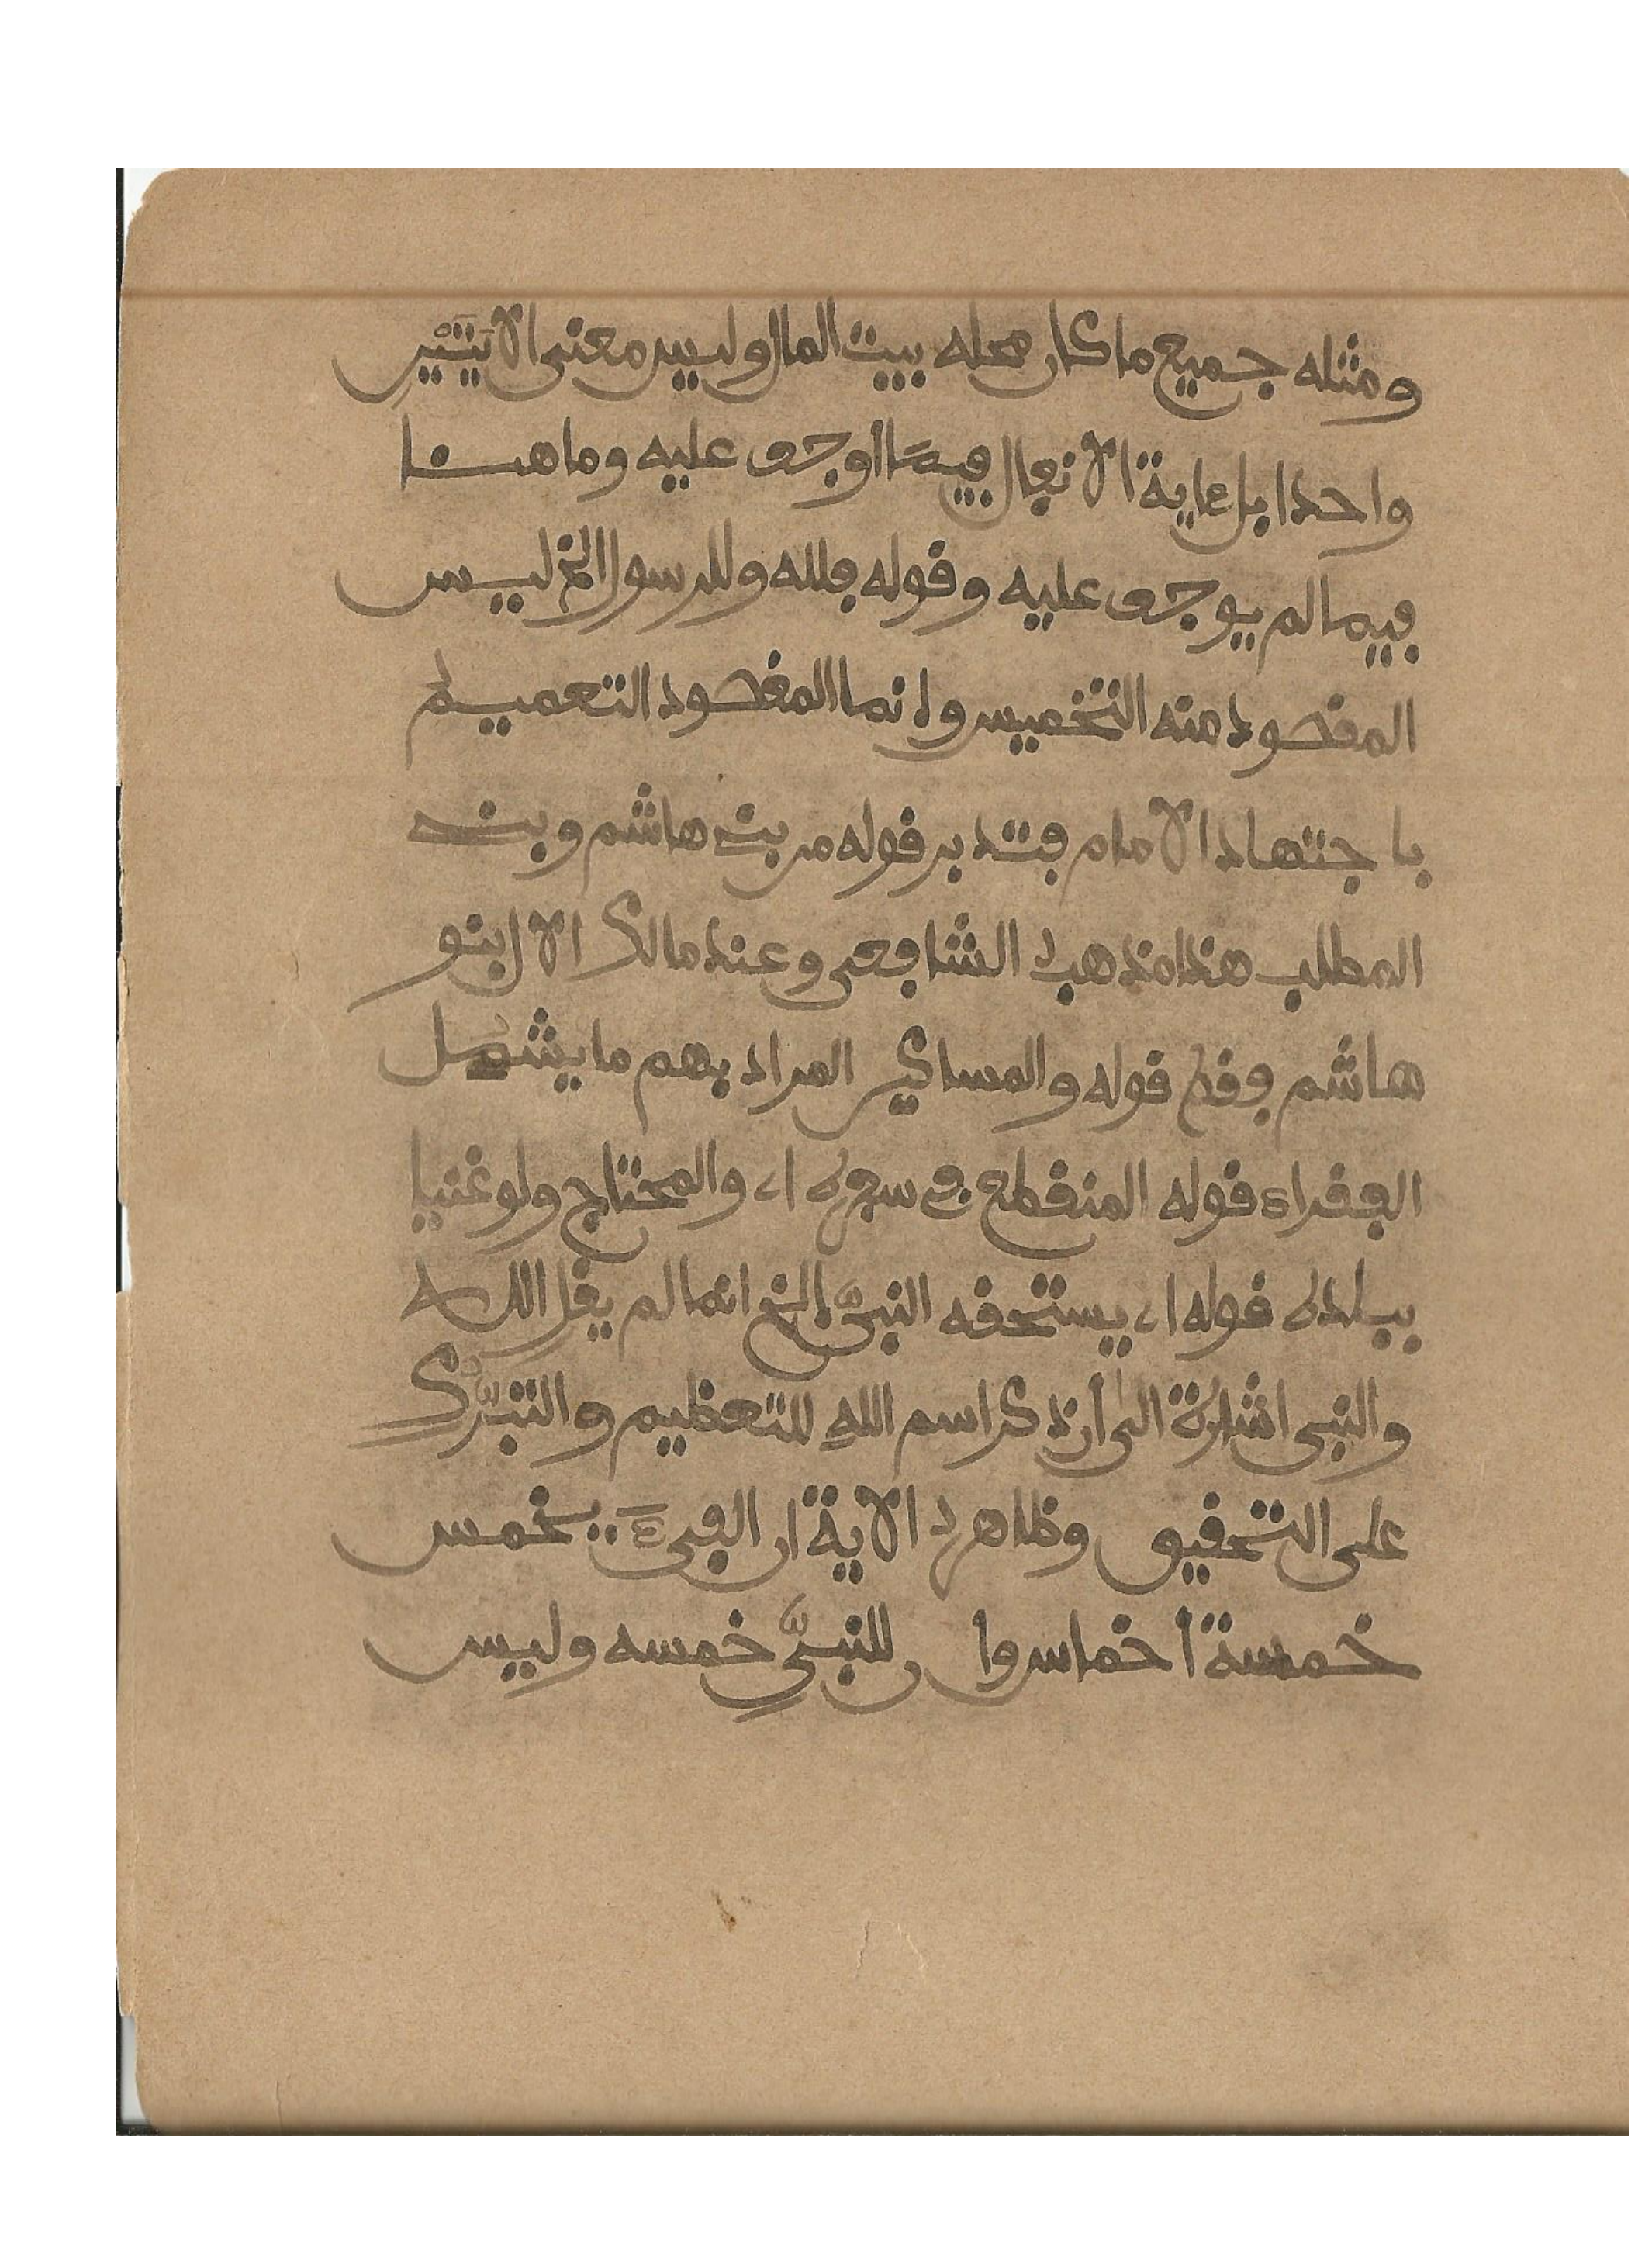 ومثله جميع ما كان محله بيت المال وليس معنى الايَتَيْنِ
واحدا بل غاية الانفال فيما اوجف عليه وما هنا
فيما لم يوجف عليه وقوله فلله وللرسول الخ ليس
المقصود منه التخميس وانما المقصود التعميم
باجتهاد الامام فتدبر قوله من بني هاشم وبني
المطلب هذا مذهب الشافعي وعند مالك الال بنو
هاشم فقط قوله والمساكين المراد بهم ما يشمل
الفقراء قوله المنقطع في سفره اي والمحتاج ولو غنيا
ببلده قوله اي يستحقه النبيّ الخ انما لم يقل الله
والنبي اشارة الى أن ذكر اسم اللهِ للتعظيم والتبرّك
على التحقيق وظاهر الاية ان الفيءَ يخمس
خمسة أخماس وان للنبيِّ خمسه وليس